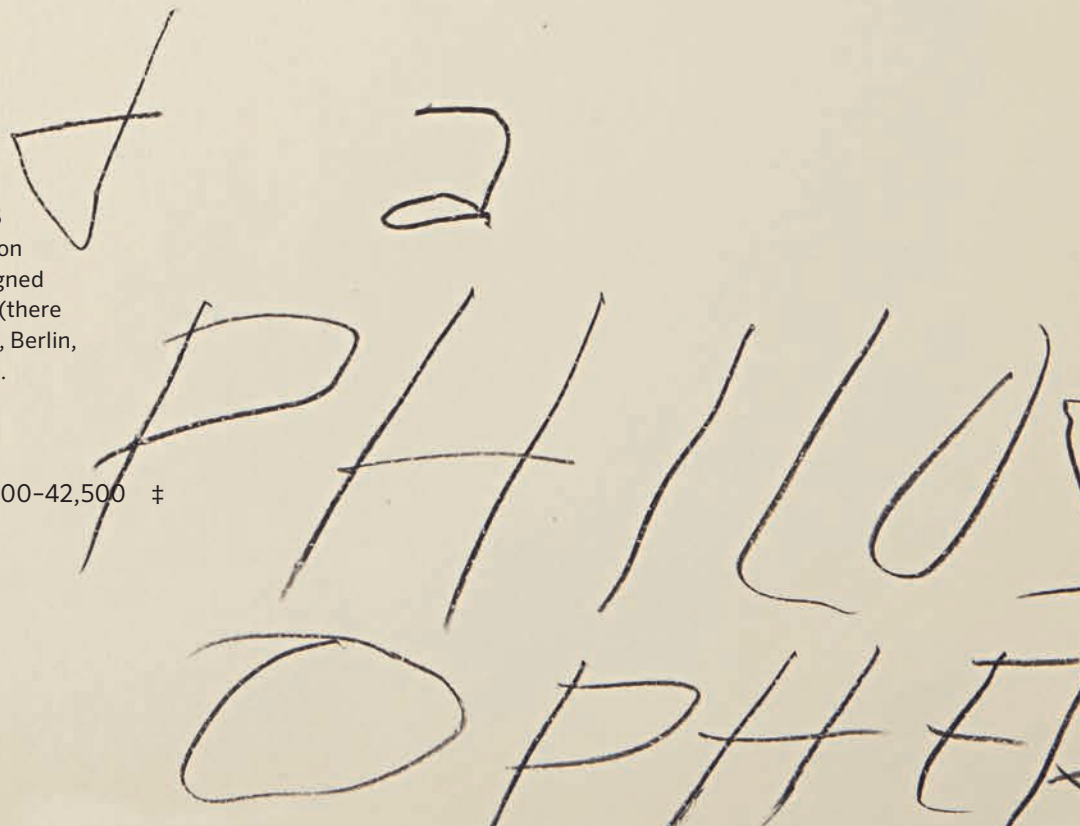 on
gned
(there
, Berlin,
.
00–42,500 ‡
a
PHILO
OPHER